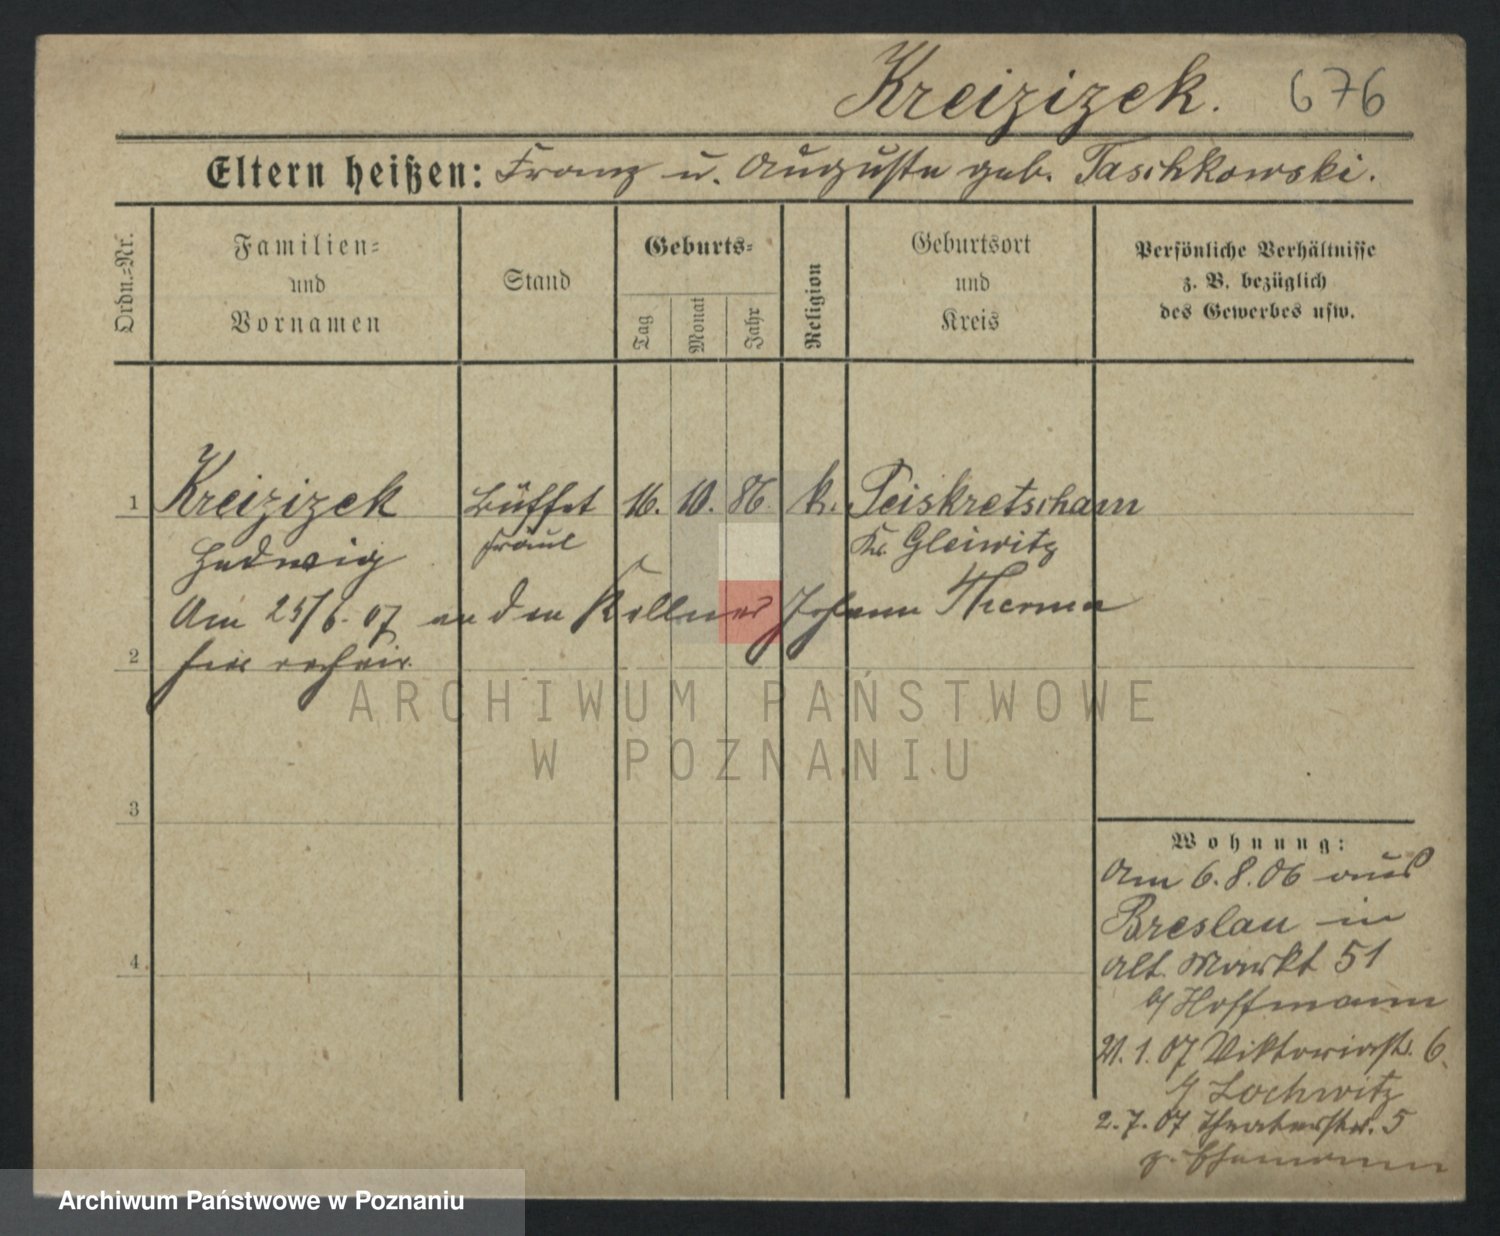 Kreizizek. 676
Eltern heißen: Franz u. Auguste geb. Taschkowski.
Ordn.=Nr.
Familien=
und
Vornamen
Stand
Geburts=
Tag
Monat
Jahr
Religion
Geburtsort
und
Kreis
Persönliche Verhältnisse
z. B. bezüglich
des Gewerbes usw.
1 Kreizizek Büffet 16. 10. 86. k. Peiskretscham
Hedwig fräul Kr. Gleiwitz
Am 25/6. 07 an den Kellner Johann
2
3
4
Wohnung:
Am 6. 8. 06 aus
Breslau in
Alt. Markt 51
b/ Hoffmann
21. 1. 07 Viktoriastr. 6.
b/ Lochwitz
2. 7. 07 Theaterstr. 5
z. Ehemann
ARCHIWUM PAŃSTWOWE
W POZNANIU
Archiwum Państwowe w Poznaniu